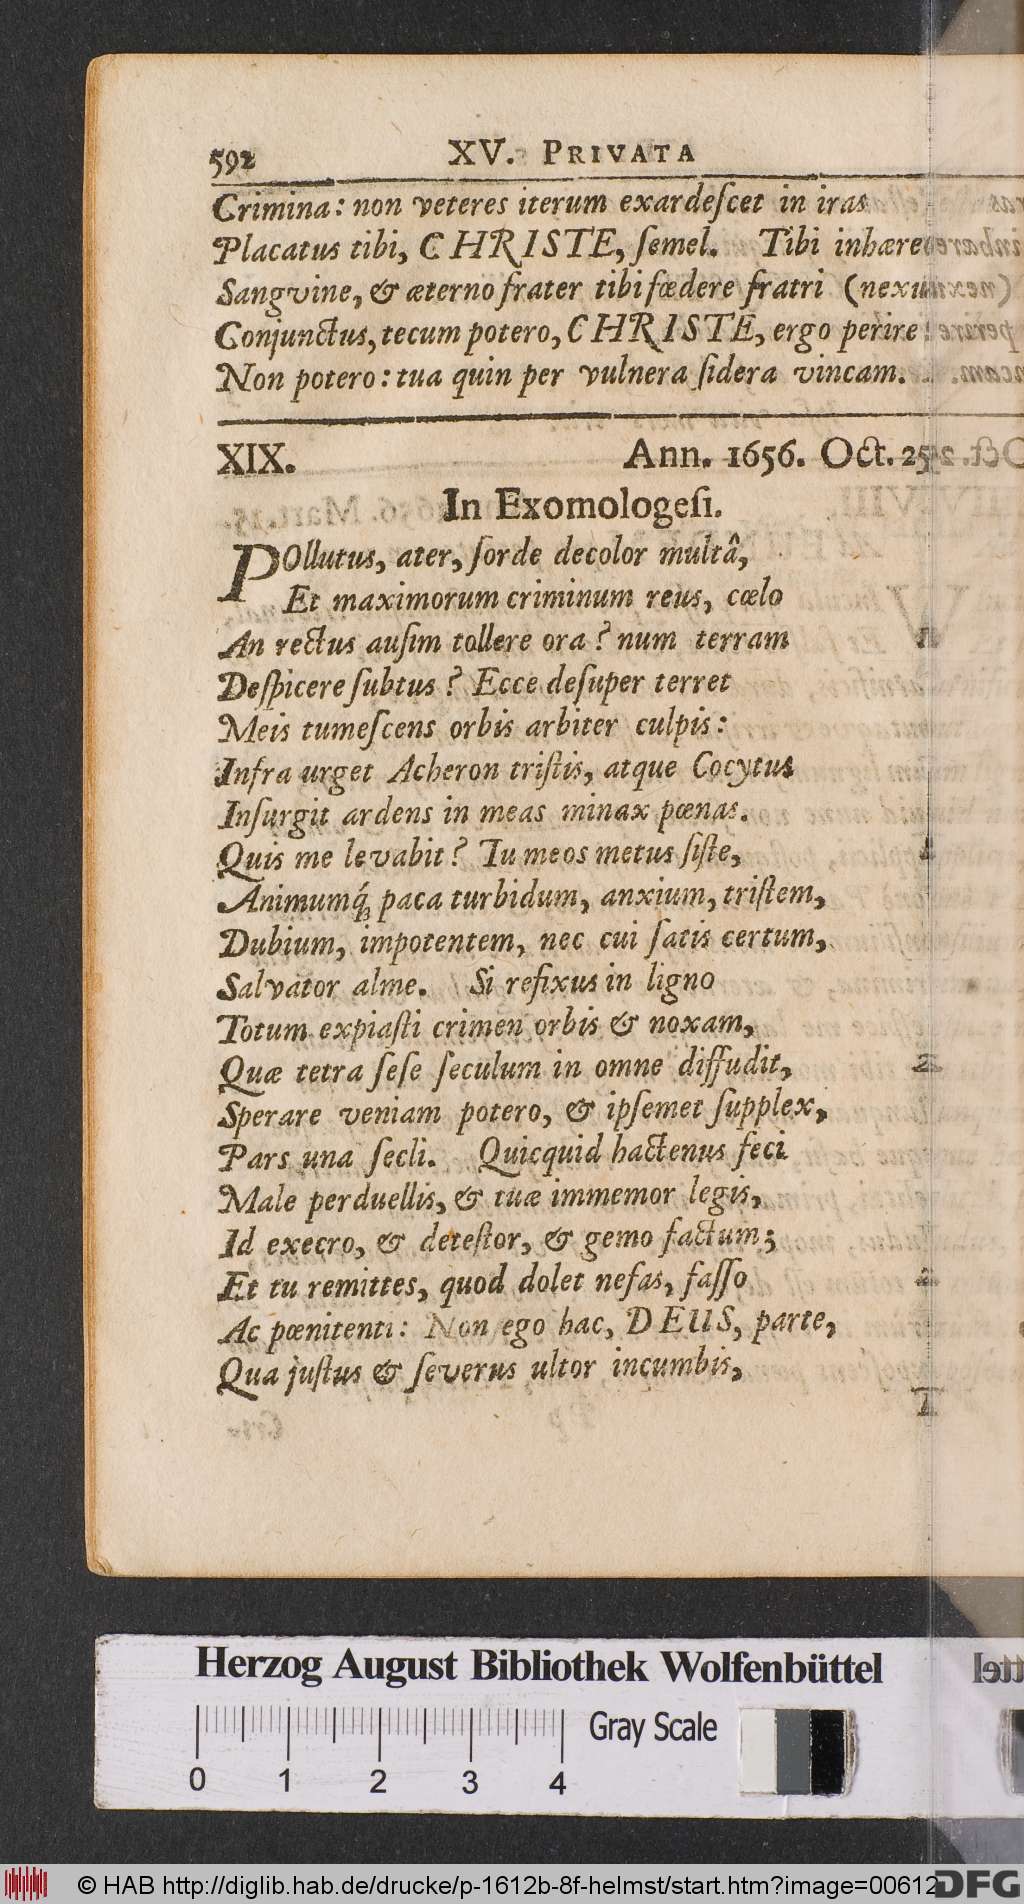 592 XV. PRIVATA
Crimina: non veteres iterum exardeſcet in iras
Placatus tibi, CHRISTE, ſemel. Tibi inhære
Sangvine, & æterno frater tibi fœdere fratri (nexu
Conjunctus, tecum potero, CHRISTE, ergo perire!
Non potero: tua quin per vulnera ſidera vincam.
XIX. Ann. 1656. Oct. 25
In Exomologeſi.
POllutus, ater, ſorde decolor multâ,
Et maximorum criminum reus, cœlo
An rectus auſim tollere ora? num terram
Deſpicere ſubtus? Ecce deſuper terret
Meis tumeſcens orbis arbiter culpis:
Infra urget Acheron triſtis, atque Cocytus
Inſurgit ardens in meas minax pœnas.
Quis me levabit? Tu meos metus ſiſte,
Animumq́; paca turbidum, anxium, triſtem,
Dubium, impotentem, nec cui ſatis certum,
Salvator alme. Si refixus in ligno
Totum expiaſti crimen orbis & noxam,
Quæ tetra ſeſe ſeculum in omne diffudit,
Sperare veniam potero, & ipſemet ſupplex,
Pars una ſecli. Quicquid hactenus feci
Male perduellis, & tuæ immemor legis,
Id execro, & deteſtor, & gemo factum;
Et tu remittes, quod dolet nefas, faſſo
Ac pœnitenti: Non ego hac, DEUS, parte,
Qua juſtus & ſeverus ultor incumbis,
Herzog August Bibliothek Wolfenbüttel
Gray Scale
0 1 2 3 4
© HAB http://diglib.hab.de/drucke/p-1612b-8f-helmst/start.htm?image=00612
DFG